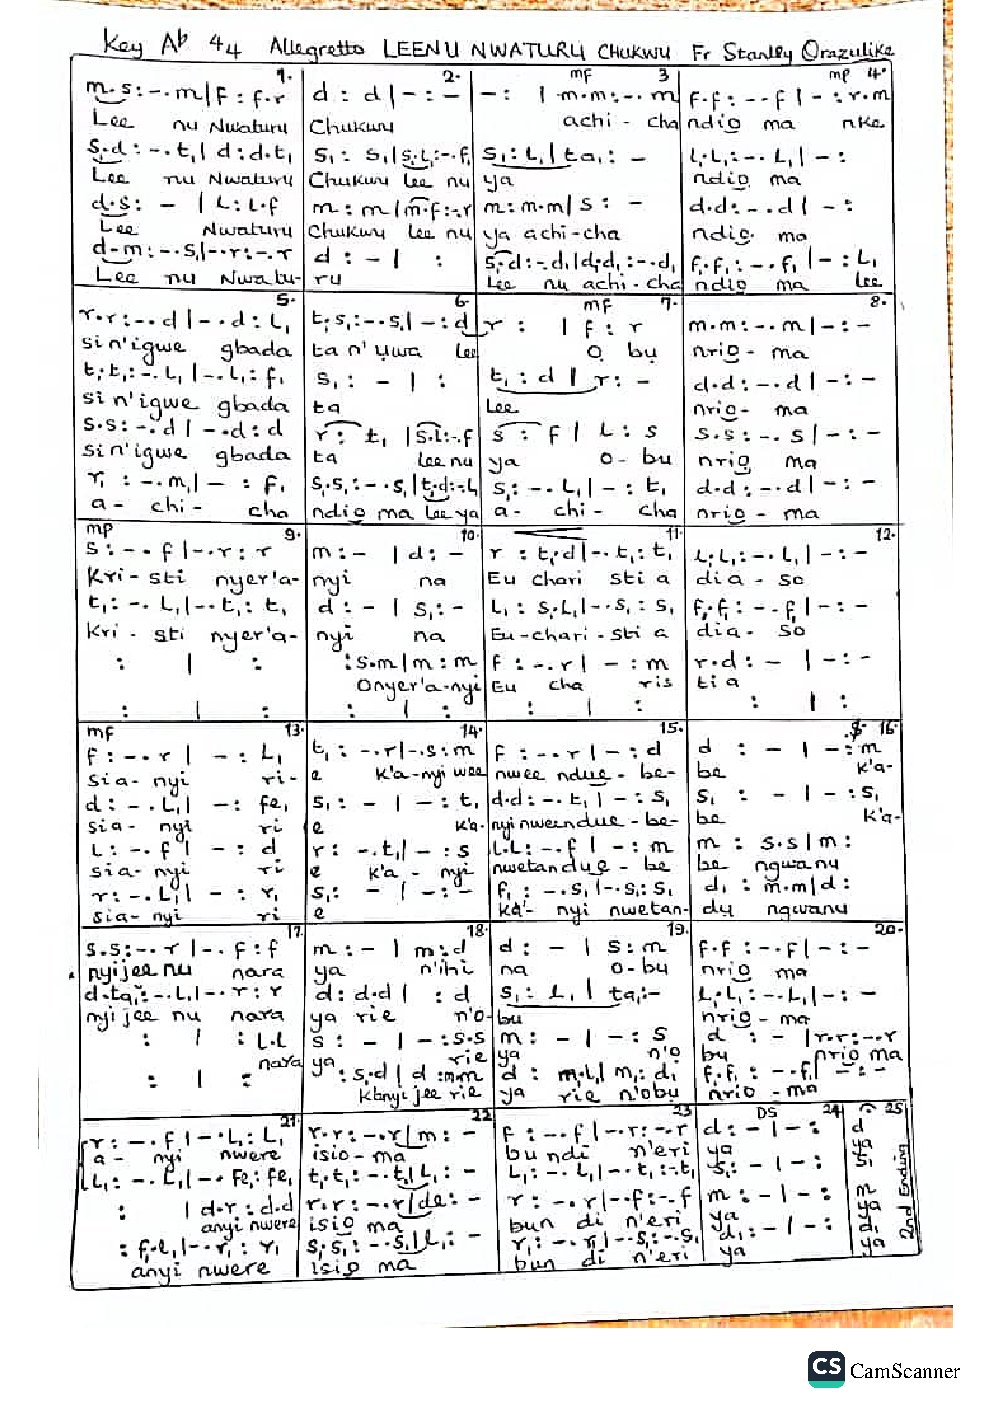 Key Ab 44 Allegretto LEENU NWATURU CHUKWU Fr Stanley Orazulike
1. 2. mf 3 mp 4.
m.s:-.m|f:f.r d:d|-:- -: |m.m:-.m f.f:-.f|-:r.m
Lee nu Nwaturu Chukwu achi-cha ndio ma nke
s,.d:-.t,|d:d.t, s,:s,|s,.l,:-.f, s,:l,|ta,:- l,.l,:-.l,|-:
Lee nu Nwaturu Chukwu lee nu ya ndio ma
d.s:-|l:l.f m:m|m.f:-.r m:m.m|s:- d.d:-.d|-:
Lee Nwaturu Chukwu lee nu ya achi-cha ndio ma
d-m:-.s,|-.r:-.r d:-|: s,.d:-.d,|d,.d,:-.d, f,.f,:-.f,|-:l,
Lee nu Nwatu- ru Lee nu achi-cha ndio ma lee
5. 6. mf 7. 8.
r.r:-.d|-.d:l, t,.s,:-.s,|-:d r: |f:r m.m:-.m|-:-
sin'igwe gbada ta n'uwa lee o bu nrio-ma
t,.t,:-.l,|-.l,:f, s,:-|: t,:d|r:- d.d:-.d|-:-
sin'igwe gbada ta Lee nrio-ma
s.s:-.d|-.d:d r:t,|s.l:-.f s:f|l:s s.s:-.s|-:-
sin'igwe gbada ta lee nu ya o-bu nrio ma
r,:-.m,|-:f, s,.s,:-.s,|t,.d:-.l, s,:-.l,|-:t, d.d:-.d|-:-
a-chi-cha ndio ma lee ya a-chi-cha nrio-ma
mp 9. 10. 11. 12.
s:-.f|-.r:r m:-|d:- r:t,.d|-.t,:t, l,.l,:-.l,|-:-
Kri-sti nyer'a- nyi na Eu chari sti a dia-so
t,:-.l,|-.t,:t, d:-|s,:- l,:s,.l,|-.s,:s, f,.f,:-.f,|-:-
Kri-sti nyer'a- nyi na Eu-chari-sti a dia-so
:|: :s.m|m:m f:-.r|-:m r.d:-|-:-
Onyer'a-nyi Eu cha ris tia
:|: :|: :|: :|:
mf 13. 14. 15. 16.
f:-.r|-:l, t,:-.r|-.s:m f:-.r|-:d d:-|-:m
sia-nyi ri- e k'a-nyi wee nwee ndue-be- be k'a-
d:-.l,|-:fe, s,:-|-:t, d.d:-.t,|-:s, s,:-|-:s,
sia-nyi ri e k'a- nyi nweendue-be- be k'a-
l:-.f|-:d r:-.t,|-:s l.l:-.f|-:m m:s.s|m:
sia-nyi ri e k'a-nyi nwetandue-be be ngwanu
r:-.l,|-:r, s,:-|-:- f,:-.s,|-.s,:s, d,:m.m|d:
sia-nyi ri e ka'-nyi nwetan- du ngwanu
17. 18. 19. 20.
s.s:-.r|-.f:f m:-|m:d d:-|s:m f.f:-.f|-:-
nyijee nu nara ya n'ihi na o-bu nrio ma
d.ta,:-.l,|-.r:r d:d.d|:d s,:l,|ta,:- l,.l,:-.l,|-:-
nyi jee nu nara ya rie n'o- bu nrio-ma
:|:l.l s:-|-:s.s m:-|-:s d:-|r.r:-.r
nara ya rie ya n'o bu nrio ma
:|: :s,.d|d:m.m d:m,.l,|m,:d, f,.f,:-.f,|-:-
kanyi jee rie ya rie n'obu nrio-ma
21. 22 23 DS 24 25
r:-.f|-.l,:l, r.r:-.r|m:- f:-.f|-.r:-.r d:-|-: d
a-nyi nwere isio-ma bundi n'eri ya ya
l,:-.l,|-.fe,:fe, t,.t,:-.t,|l,:- l,:-.l,|-.t,:-.t, s,:-|-: s,
:|d.r:d.d r.r:-.r|de:- r:-.r|-.f:-.f m:-|-: m
anyi nwere isio ma bun di n'eri ya ya
:f,.l,|-.r,:r, s,.s,:-.s,|l,:- r,:-.r,|-.s,:-.s, d,:-|-: d,
anyi nwere isio ma bun di n'eri ya ya
2nd Ending
CS CamScanner